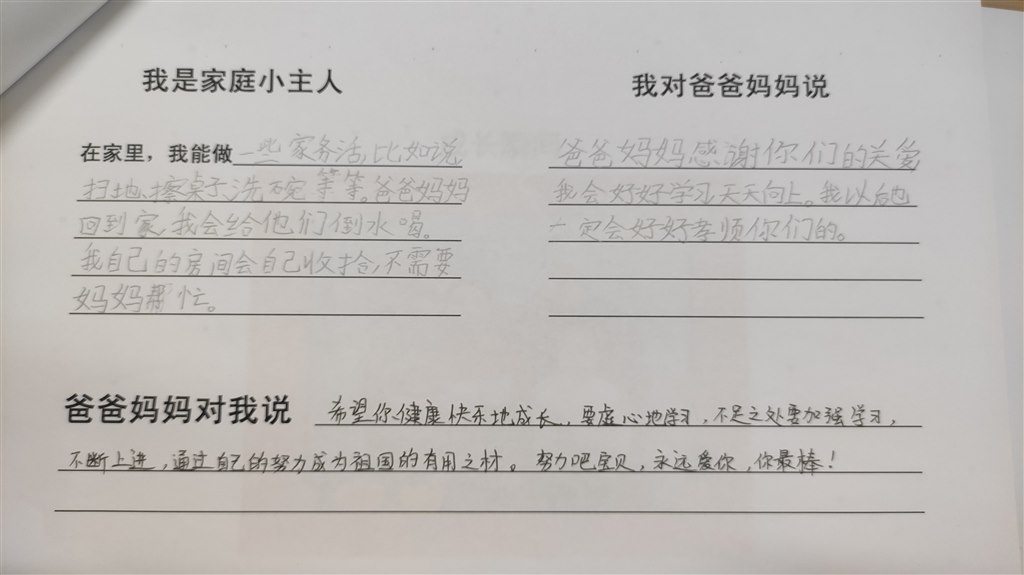 我是家庭小主人
在家里，我能做一些家务活，比如说
扫地、擦桌子、洗碗等等。爸爸妈妈
回到家，我会给他们倒水喝。
我自己的房间会自己收拾，不需要
妈妈帮忙。
我对爸爸妈妈说
爸爸妈妈感谢你们的关爱
我会好好学习，天天向上。我以后也
一定会好好孝顺你们的。
爸爸妈妈对我说 希望你健康快乐地成长，要虚心地学习，不足之处要加强学习，
不断上进，通过自己的努力成为祖国的有用之材。努力吧宝贝，永远爱你，你最棒！